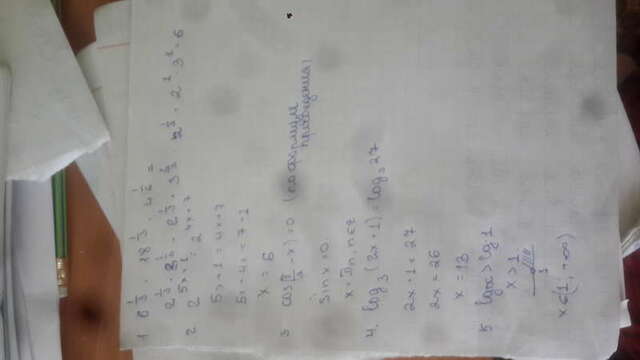 1. 6^{1/3} · 18^{1/3} · 4^{1/6} =
2^{1/3} · 3^{1/3} · 2^{1/3} · 3^{2/3} · 2^{1/3} = 2^1 · 3^1 = 6
2. 2^{5x+1} = 2^{4x+7}
5x+1 = 4x+7
5x-4x = 7-1
x = 6
3. cos(π/2 - x) = 0 (по формулам приведения)
sin x = 0
x = πn, n∈z
4. log_3 (2x+1) = log_3 27
2x+1 = 27
2x = 26
x = 13
5. lgx > lg1
x > 1
1
x∈(1; +∞)